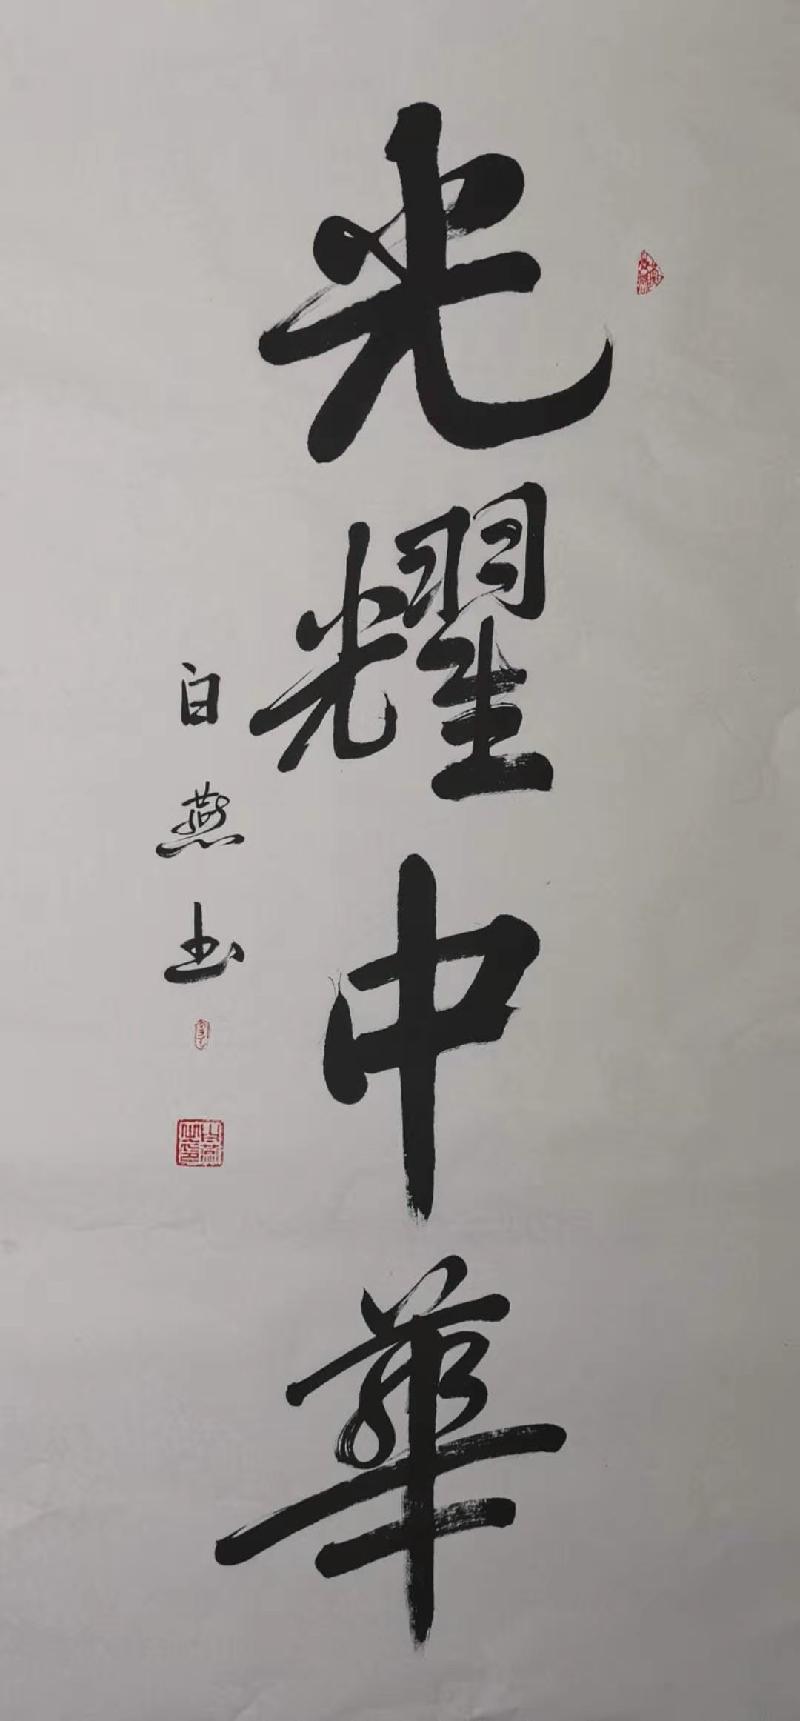 光耀中華
白燕书